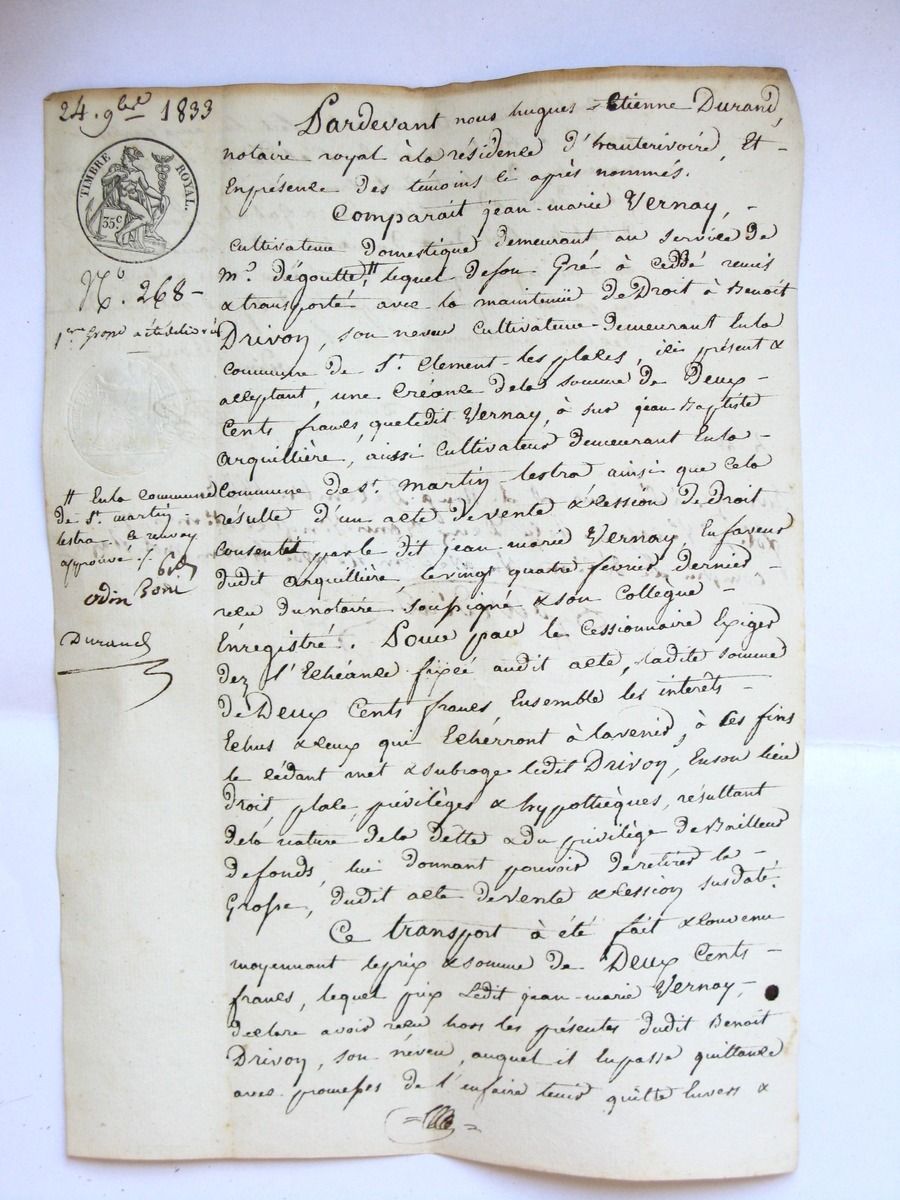 24. 9bre 1833
TIMBRE ROYAL.
35c
No. 268 -
1ère Grosse a été délivrée
# Enla Commune
de St. martin
lestra. ce renvoy
approuvé ./.
odin
Durand
Pardevant nous hugues = Etienne Durand,
notaire royal àla résidence d'hauterivoire, Et -
Enprésence des témoins ci après nommés.
Comparait jean-marie Vernay, -
Cultivateur Domestique demeurant au service de
Mr. dégoutte, # lequel deson Gré à Cédé remis
& transporté avec la maintenüe de Droit à Benoit
Drivon, son neveu Cultivateur demeurant Enla
Commune de St. Clement-les places, ici présent &
acceptant, une Créance dela somme de Deux -
Cents francs queledit Vernay, à sur jean-Baptiste
arquillière, aussi Cultivateur demeurant Enla -
Commune de St. martin lestra ainsi que cela
résulte d'un acte de vente & cession de droit
Consentit par le dit jean-marie Vernay En faveur
dudit arquillière, le vingt quatre février dernier -
reçu du notaire soussigné & son Collègue -
Enregistré. Pour par le Cessionnaire Exiger
dez l'Echéance fixée audit acte, ladite somme
de Deux Cents francs, Ensemble les interets -
Echus & ceux que Echerront à lavenir, à Ces fins
le cédant met & subroge ledit Drivon, En son lieu
droit, place, privilèges & hypothèques, résultant
dela nature dela Dette & du privilège de Bailleur
de fonds, lui donnant pouvoir de retirer la -
Grosse, dudit acte de vente & cession susdaté.
Ce transport à été fait & convenu
moyennant le prix & somme de Deux Cents -
francs, lequel prix Ledit jean-marie Vernay, -
declare avoir reçu hors les présentes dudit Benoit
Drivon, son néveu, auquel il En passe quittance
avec promesses de l'enfaire tenir quitte Envers &